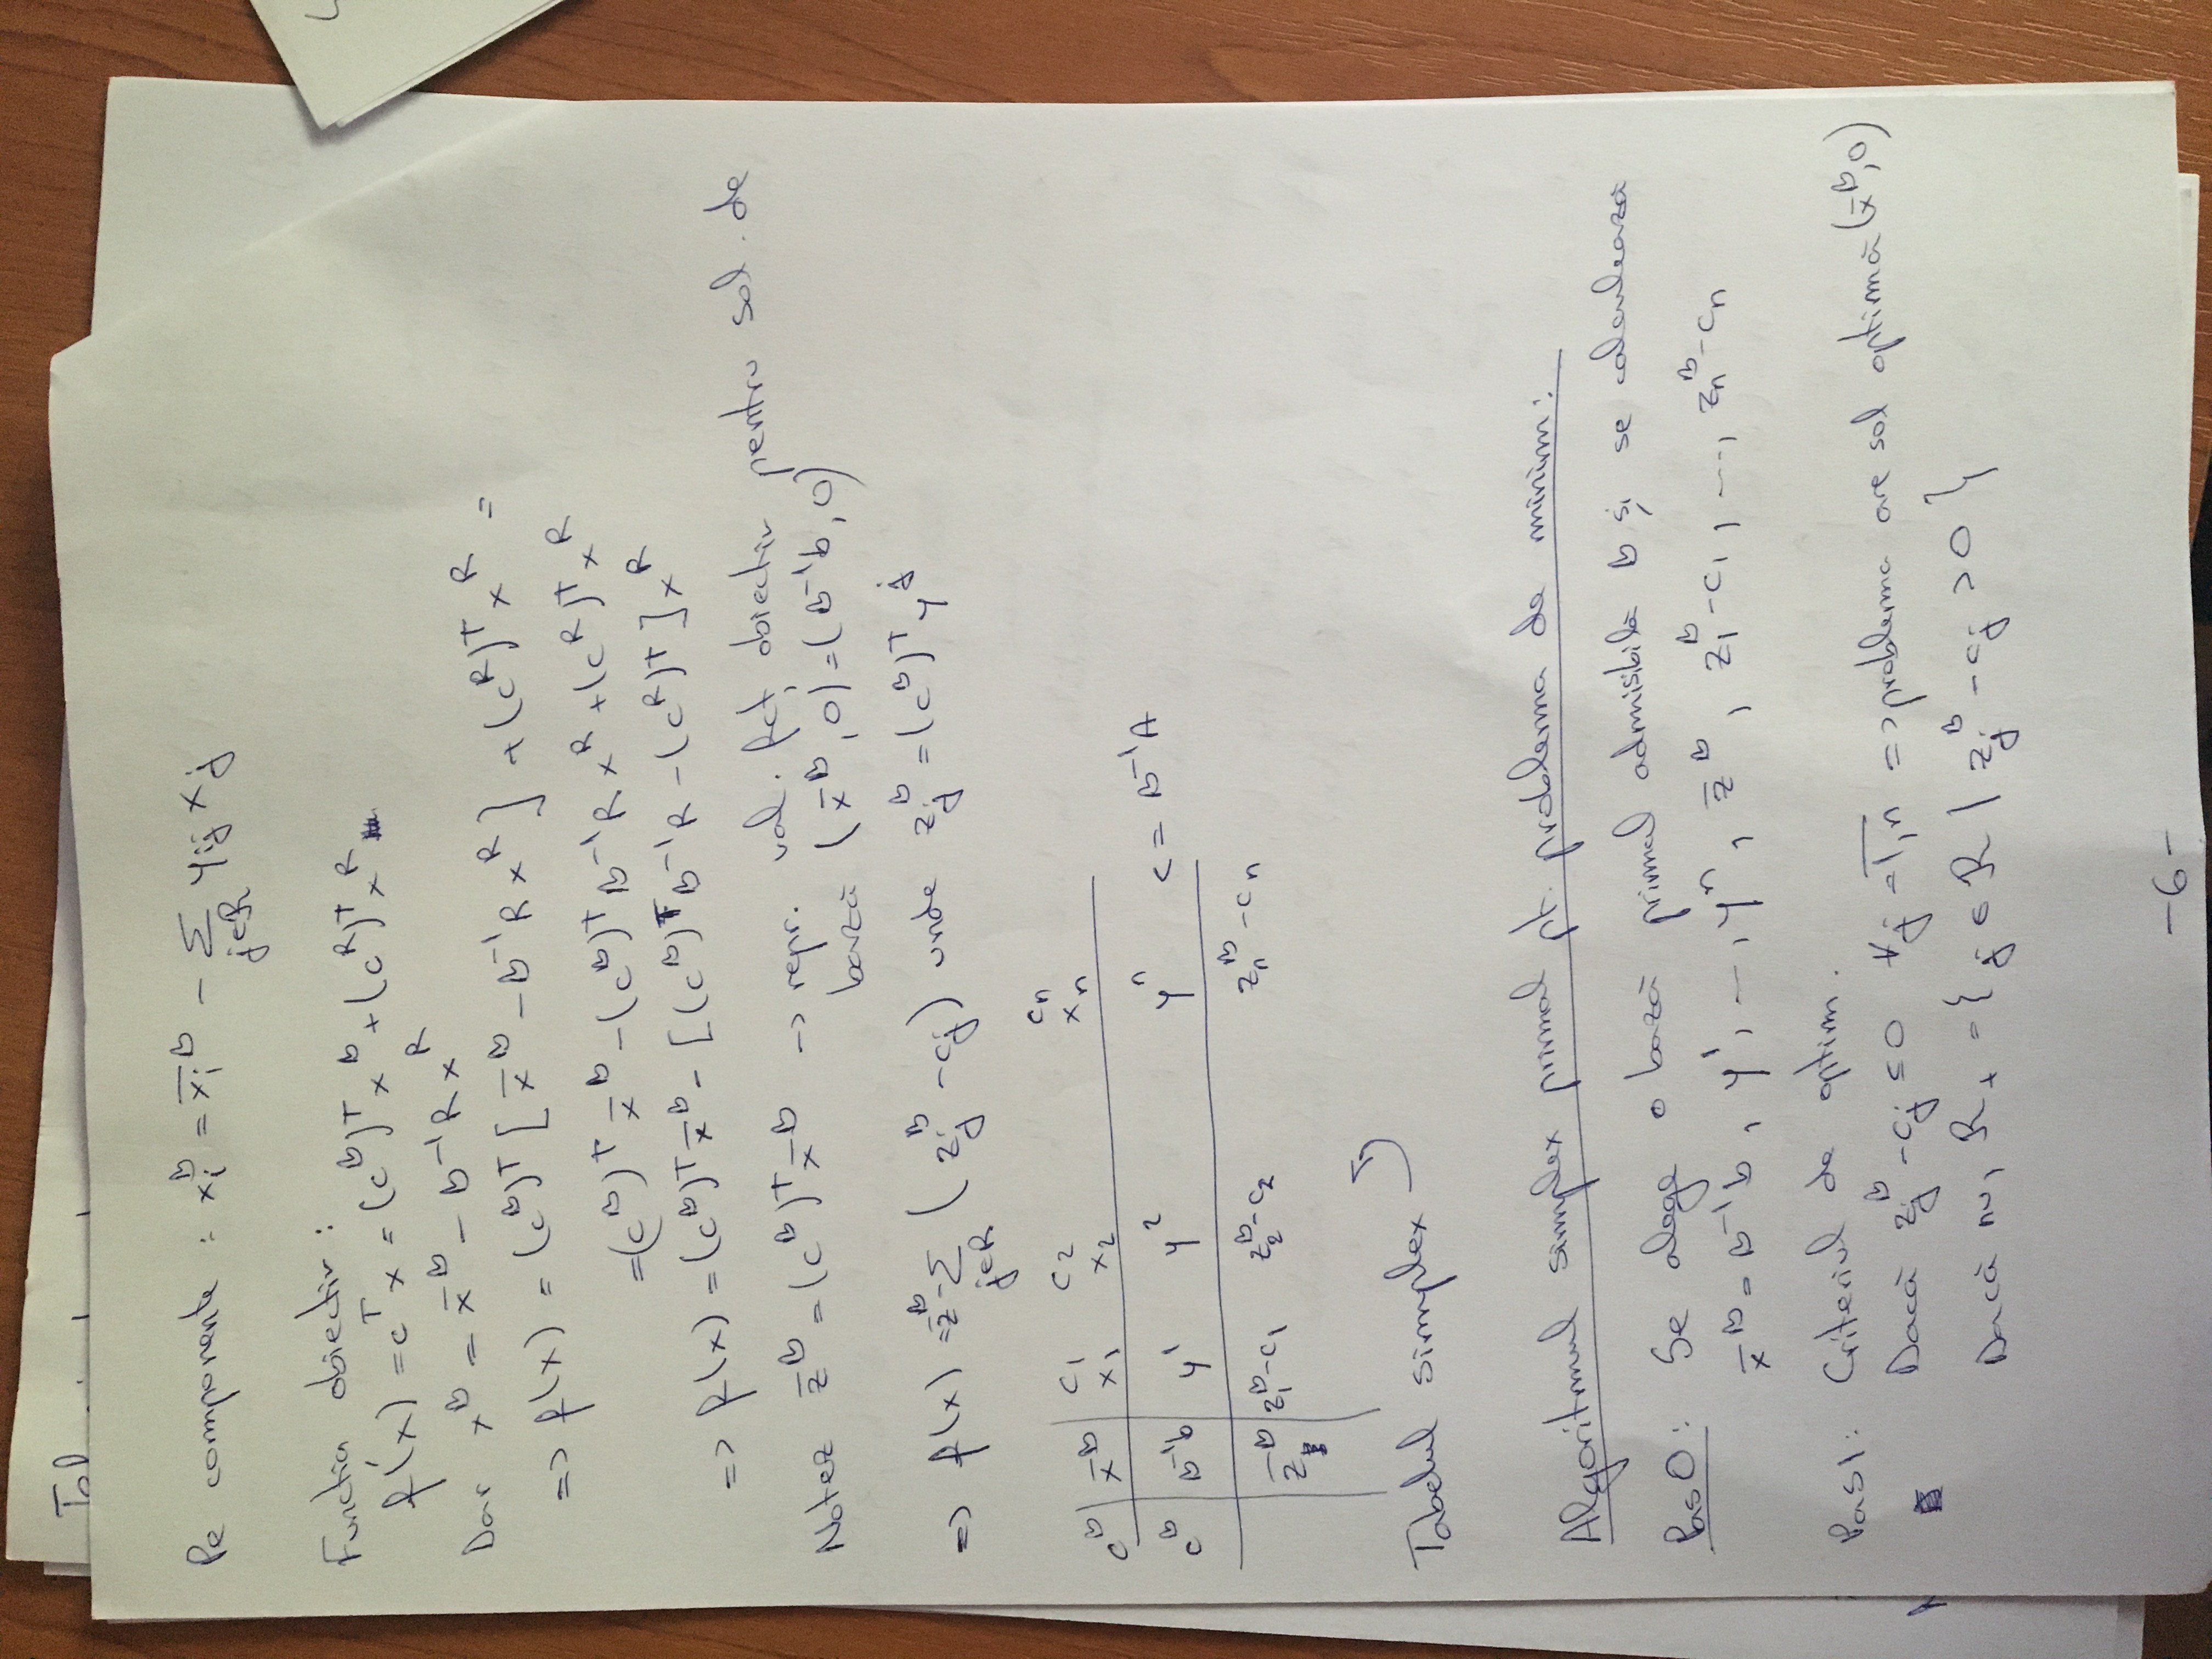 Pe componente : xᵢᴮ = x̄ᵢᴮ - Σ_{j∈R} yᵢⱼ xⱼ
Funcția obiectiv :
f(x) = cᵀx = (cᴮ)ᵀxᴮ + (cᴿ)ᵀxᴿ
Dar xᴮ = x̄ᴮ - B⁻¹R xᴿ
=> f(x) = (cᴮ)ᵀ[x̄ᴮ - B⁻¹R xᴿ] + (cᴿ)ᵀxᴿ =
= (cᴮ)ᵀ x̄ᴮ - (cᴮ)ᵀB⁻¹R xᴿ + (cᴿ)ᵀxᴿ
=> f(x) = (cᴮ)ᵀx̄ᴮ - [(cᴮ)ᵀB⁻¹R - (cᴿ)ᵀ]xᴿ
Notez z̄ᴮ = (cᴮ)ᵀx̄ᴮ -> repr. val. fct obiectiv pentru sol. de
bază (x̄ᴮ, 0) = (B⁻¹b, 0)
=> f(x) = z̄ᴮ - Σ_{j∈R} (zⱼᴮ - cⱼ) unde zⱼᴮ = (cᴮ)ᵀyʲ
c₁ c₂ cₙ
cᴮ x̄ᴮ x₁ x₂ xₙ
cᴮ B⁻¹b y¹ y² yⁿ c = B⁻¹A
z̄ᴮ z₁ᴮ-c₁ z₂ᴮ-c₂ zₙᴮ-cₙ
Tabelul simplex
Algoritmul simplex primal pt. problema de minim:
Pas0: Se alege o bază primal admisibilă B și se calculează
x̄ᴮ = B⁻¹b, y¹, ..., yⁿ, z̄ᴮ, z₁ᴮ-c₁, ..., zₙᴮ-cₙ
Pas1: Criteriul de optim.
Dacă zⱼᴮ-cⱼ ≤ 0 ∀j = 1,n => problema are sol optimă (x̄ᴮ, 0)
Dacă nu, R₊ = { j ∈ R | zⱼᴮ - cⱼ > 0 }
-6-